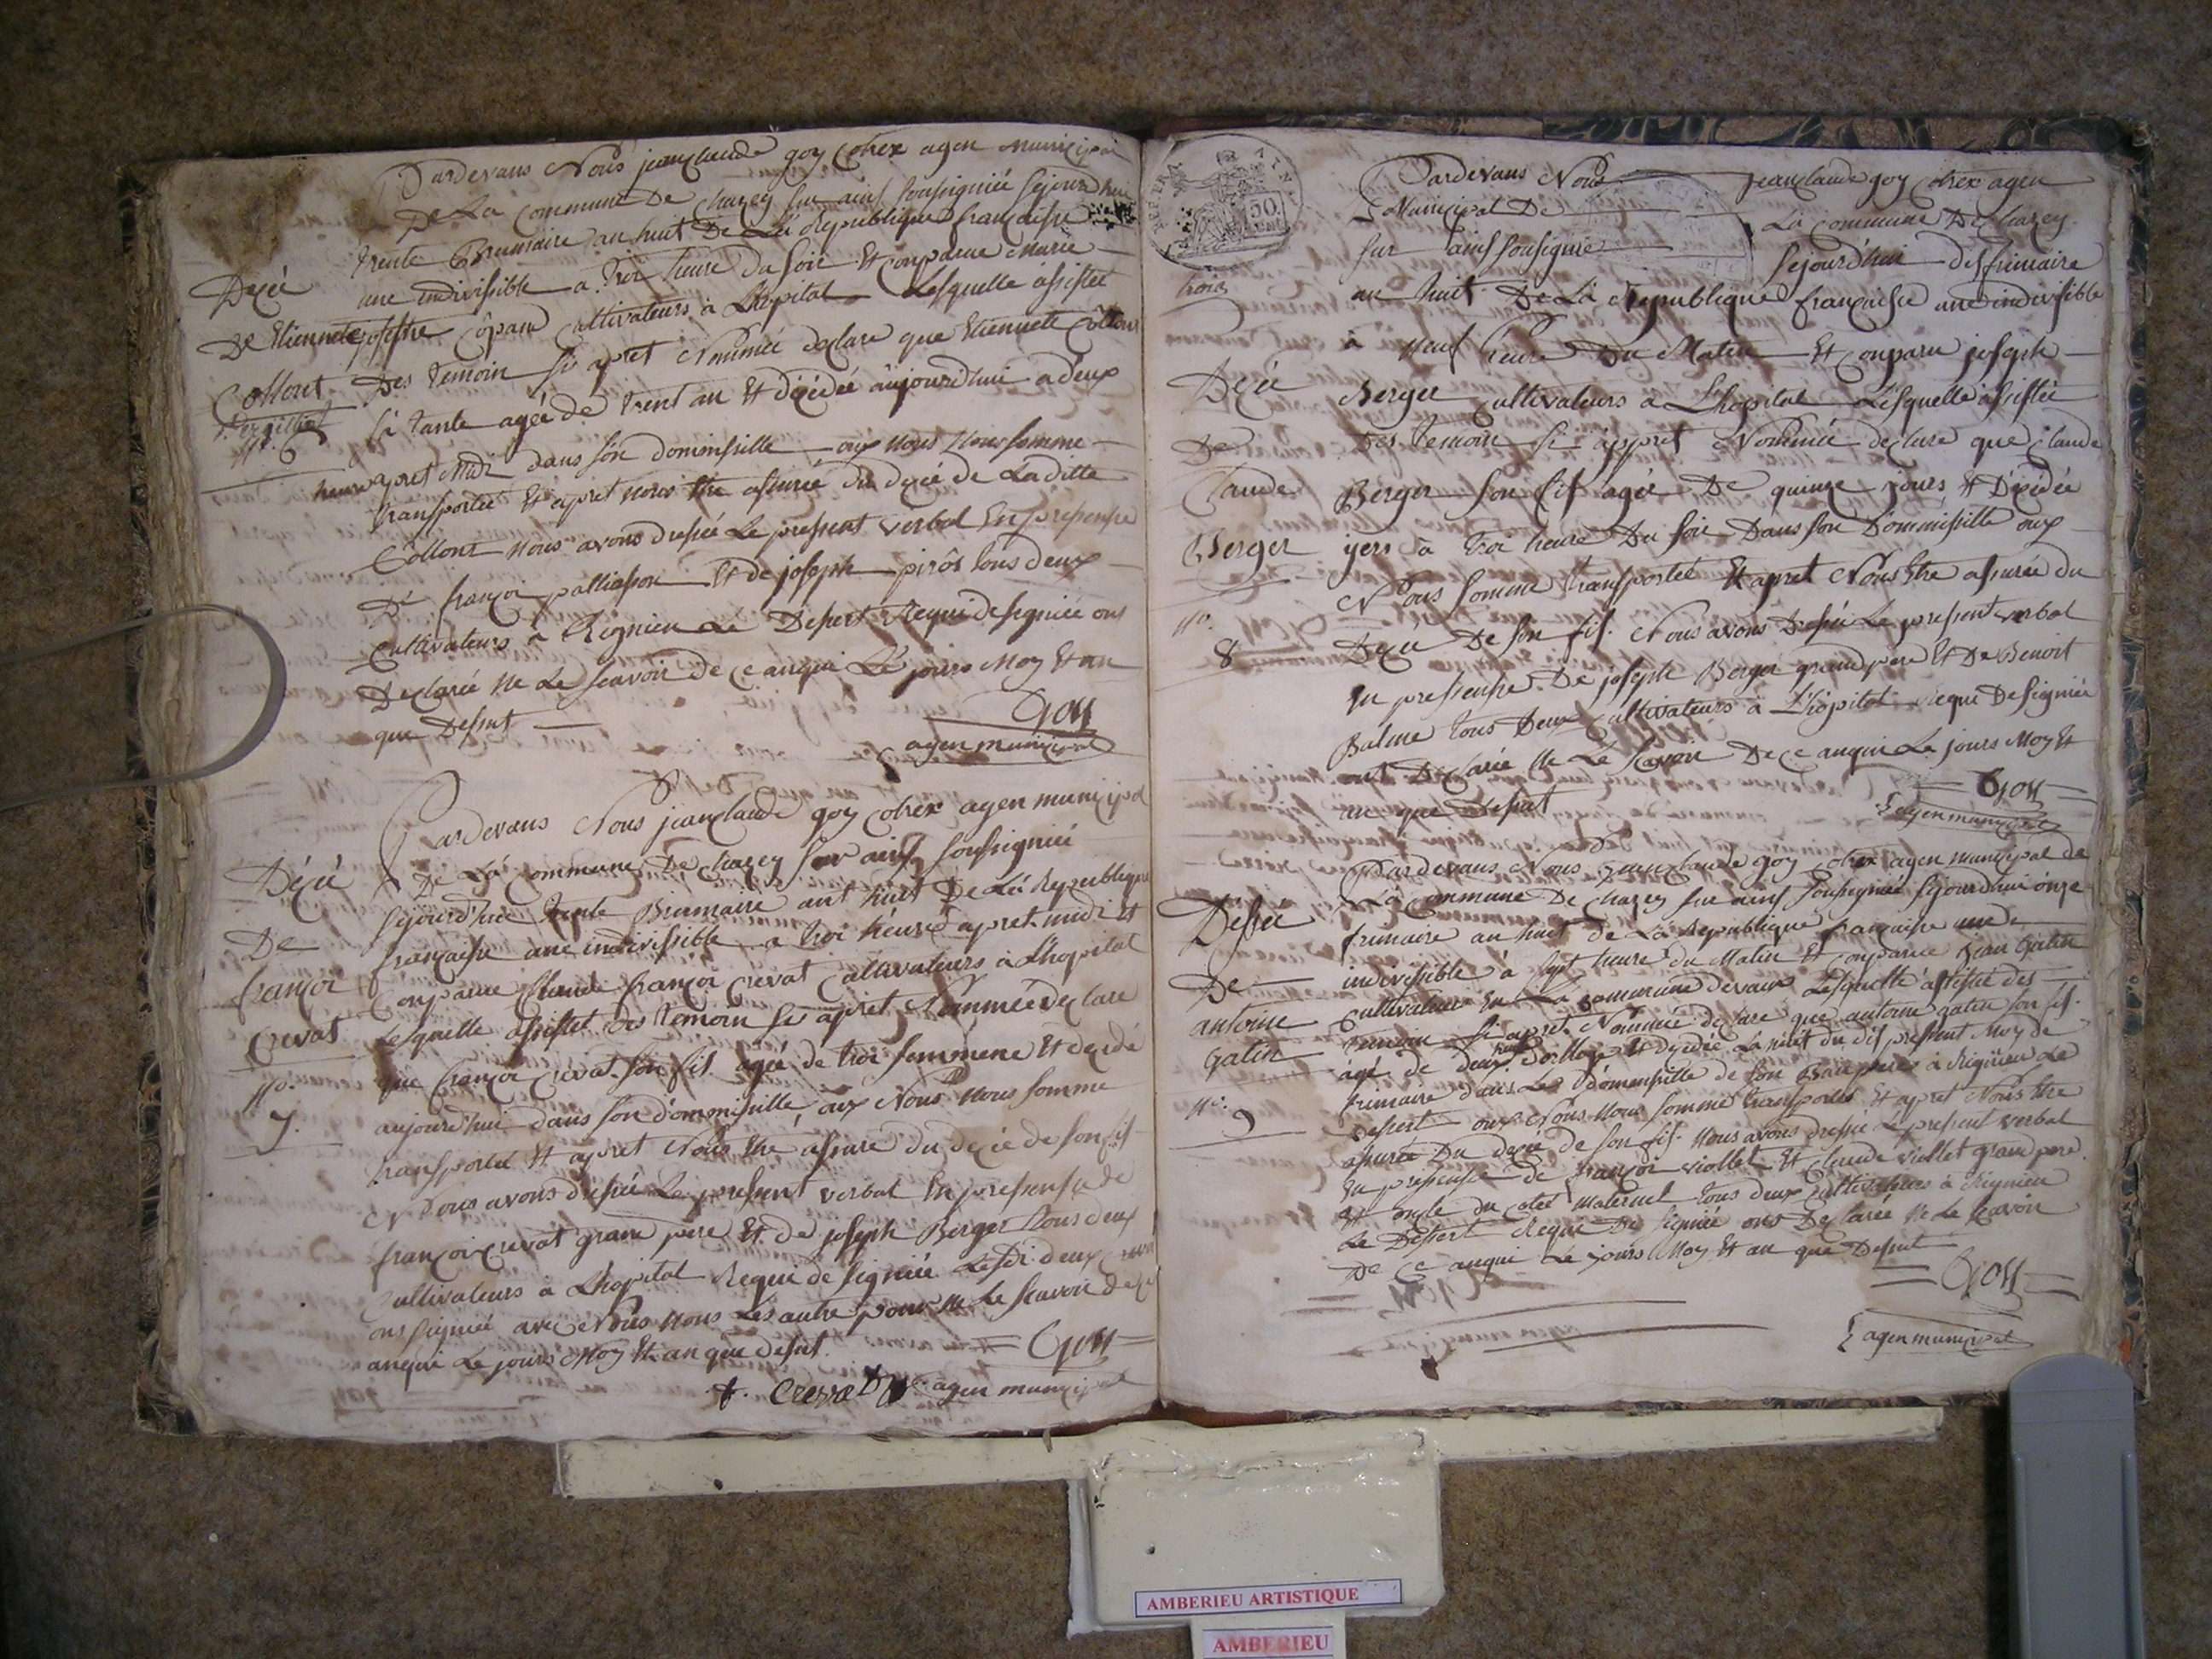 Pardevans Nous jean claude goy cohex agen municipal
De La Commune De chazey sur ains sousigniié sejourdhui
trente Brumaire an huit De La Republique francaisse
une indivisible a troi heure du soir Et conparue Marie
josephte Cultivateurs à Lhopital Lesquelle assistée
Des temoin si apret Nommée declare que Etiennete Collont
sa tante ageé de trent an Et décédée aujourd'hui a deux
heure apret Midi dans son dommissille oux nous nous somme
transportée Et apret nous Etre assurée du decée de Laditte
Collont nous avons dressée Le pressent verbal En pressensse
De françoi palliasson Et de joseph pirôs tous deux
Cultivateurs à Rignieu Le Desert Requi de signiée ons
Declarée Ne Le scavoir de ce anqui Le jours Moy Et an
que Dessut
Goy
agen municipal
Decée
De Etiennete
Collont
N°. 6
Pardevans Nous jean claude goy cohex agen municipal
De La Commune De chazey sur ains soussigniée
sejourd'huit trente Brumaire ant huit De La Republique
françaisse une indivisible a troi heure apret midi Et
Conparue Claude françoi crevat Cultivateurs à Lhopital
Lesquelle assistet des temoin si apret Nommée declare
que françoi crevat son fil ageé de troi semmene Et decedé
aujourd'hui dans son dommissille oux Nous nous somme
transportet Et apret Nous Etre assuré du decée de son fil
Nous avons dressée Le pressent verbal En pressensse de
françoi crevat grand pere Et de joseph Berger tous deux
Cultivateurs à Lhopital Requi de signiée Lesdi deux crevat
ons signiée avec Nous nous Les autre pour Ne Le scavoir de ce
anqui Le jours Moy Et an que dessut.
Goy
f. Crevat agen municipal
Décée
De
françoi
Crevat
N°.
7.
trois
Pardevans Nous jean claude goy cohex agen
Municipal De La commune De chazey
sur ains sousigniée sejourd'hui dis frimaire
an huit De La Republique françaisse une indivisible
à neuf heure Du Matin Et conparu joseph
Berger Cultivateurs a Lhopital Lesquelle assistée
Des temoin si appret Nommée declare que Claude
Berger son fis ageé De quinze jours Et Décédée
yers à troi heure Du soir Dans son Dommissille oux
Nous somme transportet Et apret Nous Etre assurée du
Decée De son fis. Nous avons Dressée Le pressent verbal
En pressensse De joseph Berger grand pere Et De Benoit
Balme tous Deux Cultivateurs à Lhopital requi De signiée
ont Declarée Ne Le scavoir De ce anqui Le jours Moy Et
an que Dessut
Goy
agen municipal
Decée
De
Claude
Berger
N°.
8
Pardevans Nous jean claude goy cohex agen municipal de
La Commune De chazey sur ains soussigniée sejourdhui onze
frimaire an huit de La Republique françaisse une
indivisible à sept heure du Matin Et conparue jean Gatin
Cultivateur En La commune devaux Lesquelle assistée des
temoin si apret Nommée declare que antoine gatin son fis.
âgé de deux Et decedée La nuit du dis pressent Moy de
frimaire dans Le dommissille de son Beau pere à Rignieu Le
Desert oux Nous Nous somme transportés Et apret Nous Etre
assurée Du decée de son fis. Nous avons dressée Le pressent verbal
En pressensse de françoi viollet Et Claude viollet grand pere
Et oncle du cotée maternel tous deux Cultivateurs à Rignieu
Le Desert Requi De signiée ons Declarée Ne Le scavoir
De Ce anqui Le jours Moy Et an que Dessut
Goy
agen municipal
Dessée
De
antoine
Gatin
N°.
9
AMBERIEU ARTISTIQUE
AMBERIEU